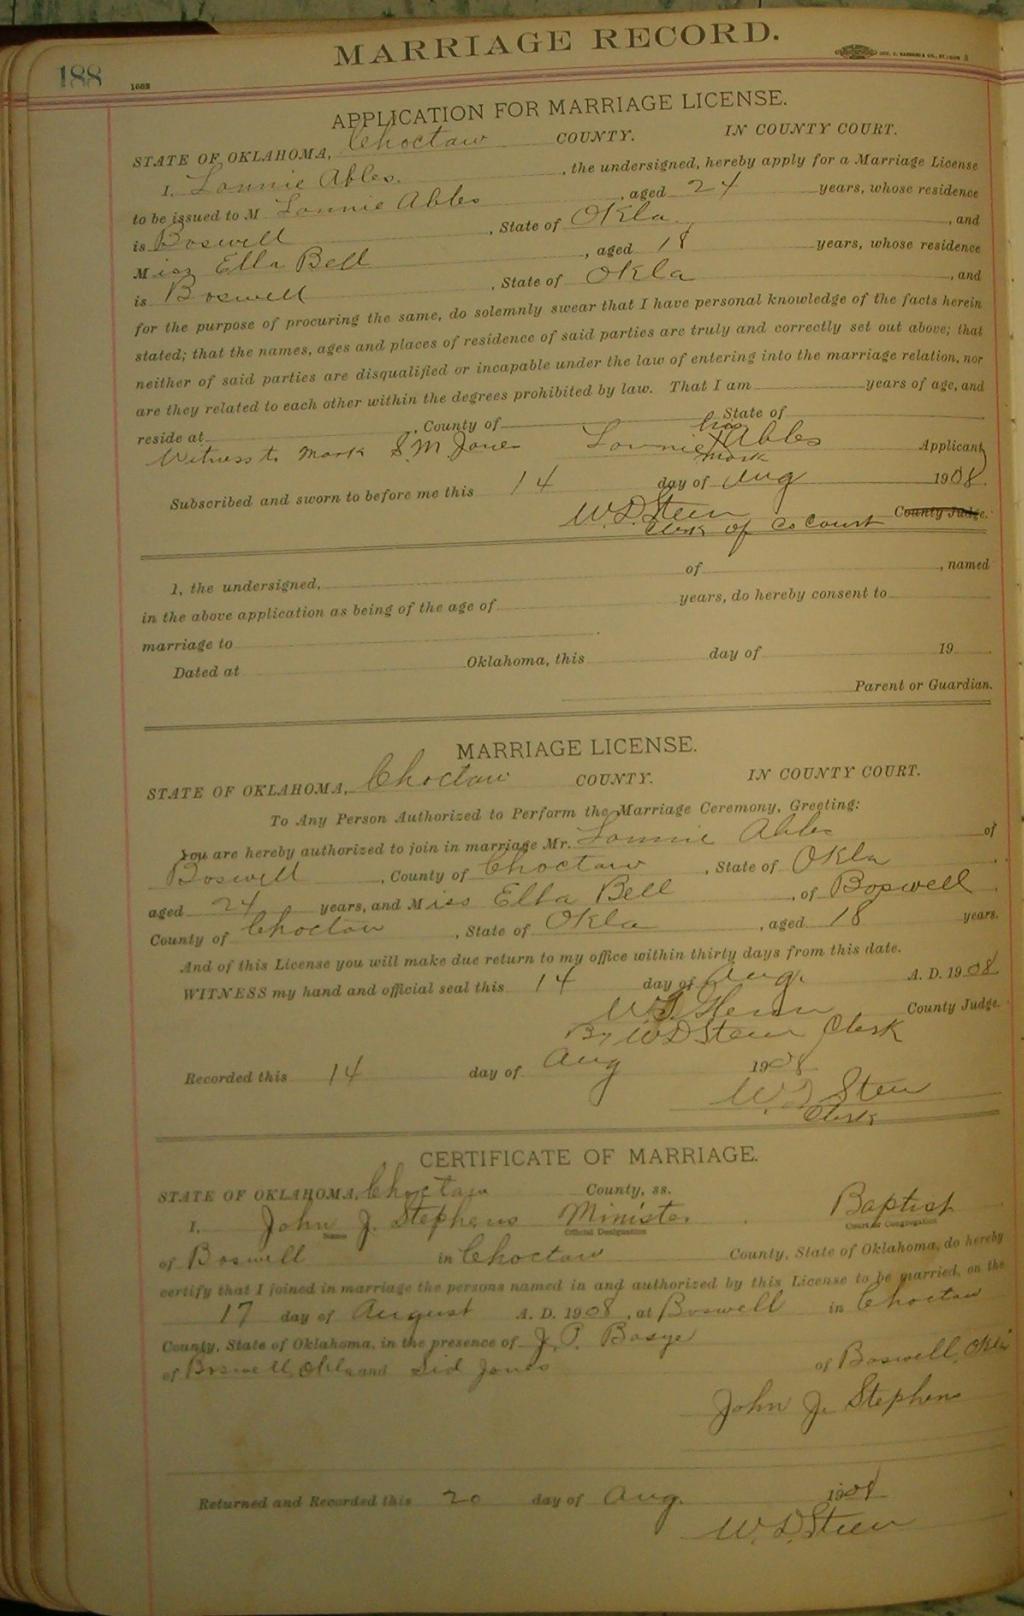 MARRIAGE RECORD.
188
APPLICATION FOR MARRIAGE LICENSE.
STATE OF OKLAHOMA, Choctaw COUNTY. IN COUNTY COURT.
I, Lonnie Ables. , the undersigned, hereby apply for a Marriage License
to be issued to M Lonnie Ables , aged 24 years, whose residence
is Boswell , State of Okla , and
Miss Ella Bell , aged 18 years, whose residence
is Boswell , State of Okla , and
for the purpose of procuring the same, do solemnly swear that I have personal knowledge of the facts herein
stated; that the names, ages and places of residence of said parties are truly and correctly set out above; that
neither of said parties are disqualified or incapable under the law of entering into the marriage relation, nor
are they related to each other within the degrees prohibited by law. That I am years of age, and
reside at , County of State of
Witness to mark S.M. Jones Lonnie his X mark Ables Applicant
Subscribed and sworn to before me this 14 day of Aug 1908
W.D. Steen County Judge.
Clerk of Co Court
I, the undersigned, of , named
in the above application as being of the age of years, do hereby consent to
marriage to
Dated at Oklahoma, this day of 19
Parent or Guardian.
MARRIAGE LICENSE.
STATE OF OKLAHOMA, Choctaw COUNTY. IN COUNTY COURT.
To Any Person Authorized to Perform the Marriage Ceremony, Greeting:
You are hereby authorized to join in marriage Mr. Lonnie Ables of
Boswell , County of Choctaw , State of Okla ,
aged 24 years, and Miss Ella Bell , of Boswell ,
County of Choctaw , State of Okla , aged 18 years.
And of this License you will make due return to my office within thirty days from this date.
WITNESS my hand and official seal this 14 day of Aug. A. D. 1908
W.T. County Judge.
By W D Steen Clerk
Recorded this 14 day of Aug 1908
W.D Steen
Clerk
CERTIFICATE OF MARRIAGE.
STATE OF OKLAHOMA, Choctaw County, ss.
I, John J. Stephens Minister Baptist
Name Official Designation Court or Congregation
of Boswell in Choctaw County, State of Oklahoma, do hereby
certify that I joined in marriage the persons named in and authorized by this License to be married, on the
17 day of August A. D. 1908 , at Boswell in Choctaw
County, State of Oklahoma, in the presence of J.P. Basye
of Boswell, Okla and Sid Jones of Boswell, Okla
John J. Stephens
Returned and Recorded this 20 day of Aug. 1908
W.D. Steen